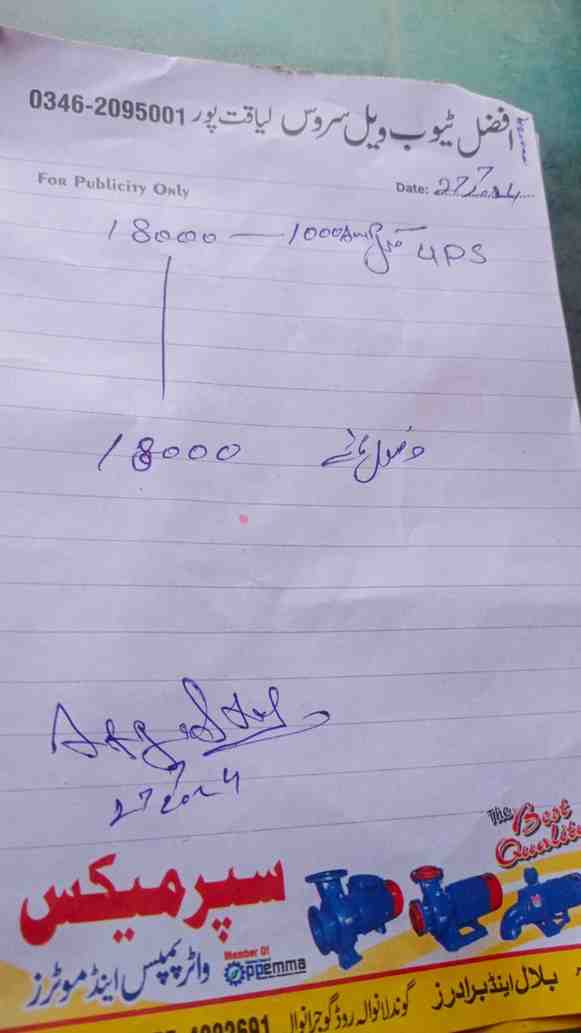 افضل ٹیوب ویل سروس لیاقت پور 0346-2095001
FOR PUBLICITY ONLY
Date: 27/7/2024
18000 — 1000 UPS
18000 وصول پائے
27/7/2024
The Best Quality
سپر میکس
واٹر پمپس اینڈ موٹرز
Member Of
ppemma
بلال اینڈ برادرز گوندلانوالہ روڈ گوجرانوالہ